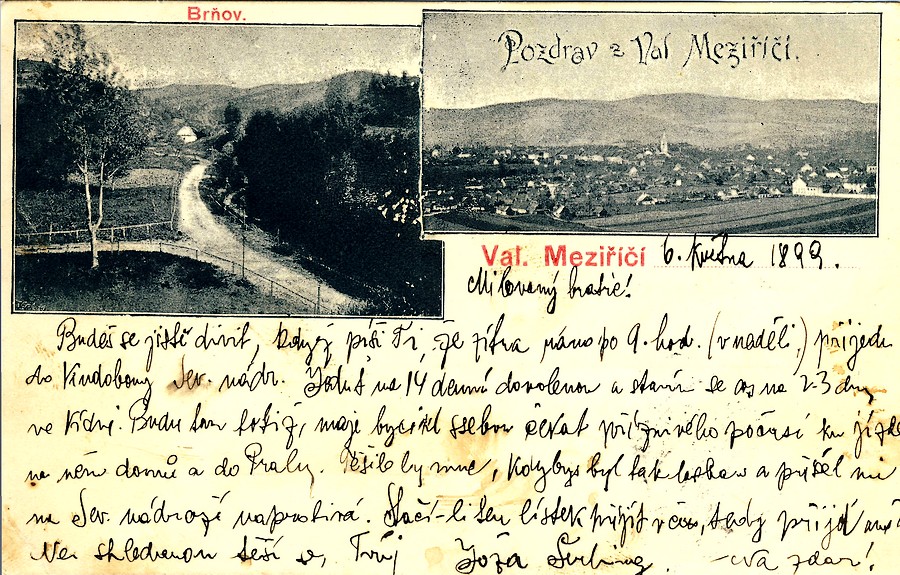 Brňov.
Pozdrav z Val Meziříčí.
Val. Meziříčí 6. května 1899.
Milovaný bratře!
Budeš se jistě divit, když píši Ti, že zítra ráno po 9. hod. (v neděli,) přijedu
do Vindobony Sev. nádr. Jedu na 14 denní dovolenou a stavím se as na 2-3 dny
ve Vídni. Budu tam totiž, maje bycikl ssebou čekat příznivého počasí ku jízdě
na něm domů a do Prahy. Těšilo by mne, kdybys byl tak laskav a přišel mi
na Sev. nádraží naproti. Stačí-li ten lístek přijít v čas, tedy přijď
Na shledanou těší se, Tvůj Joža -Na zdar!